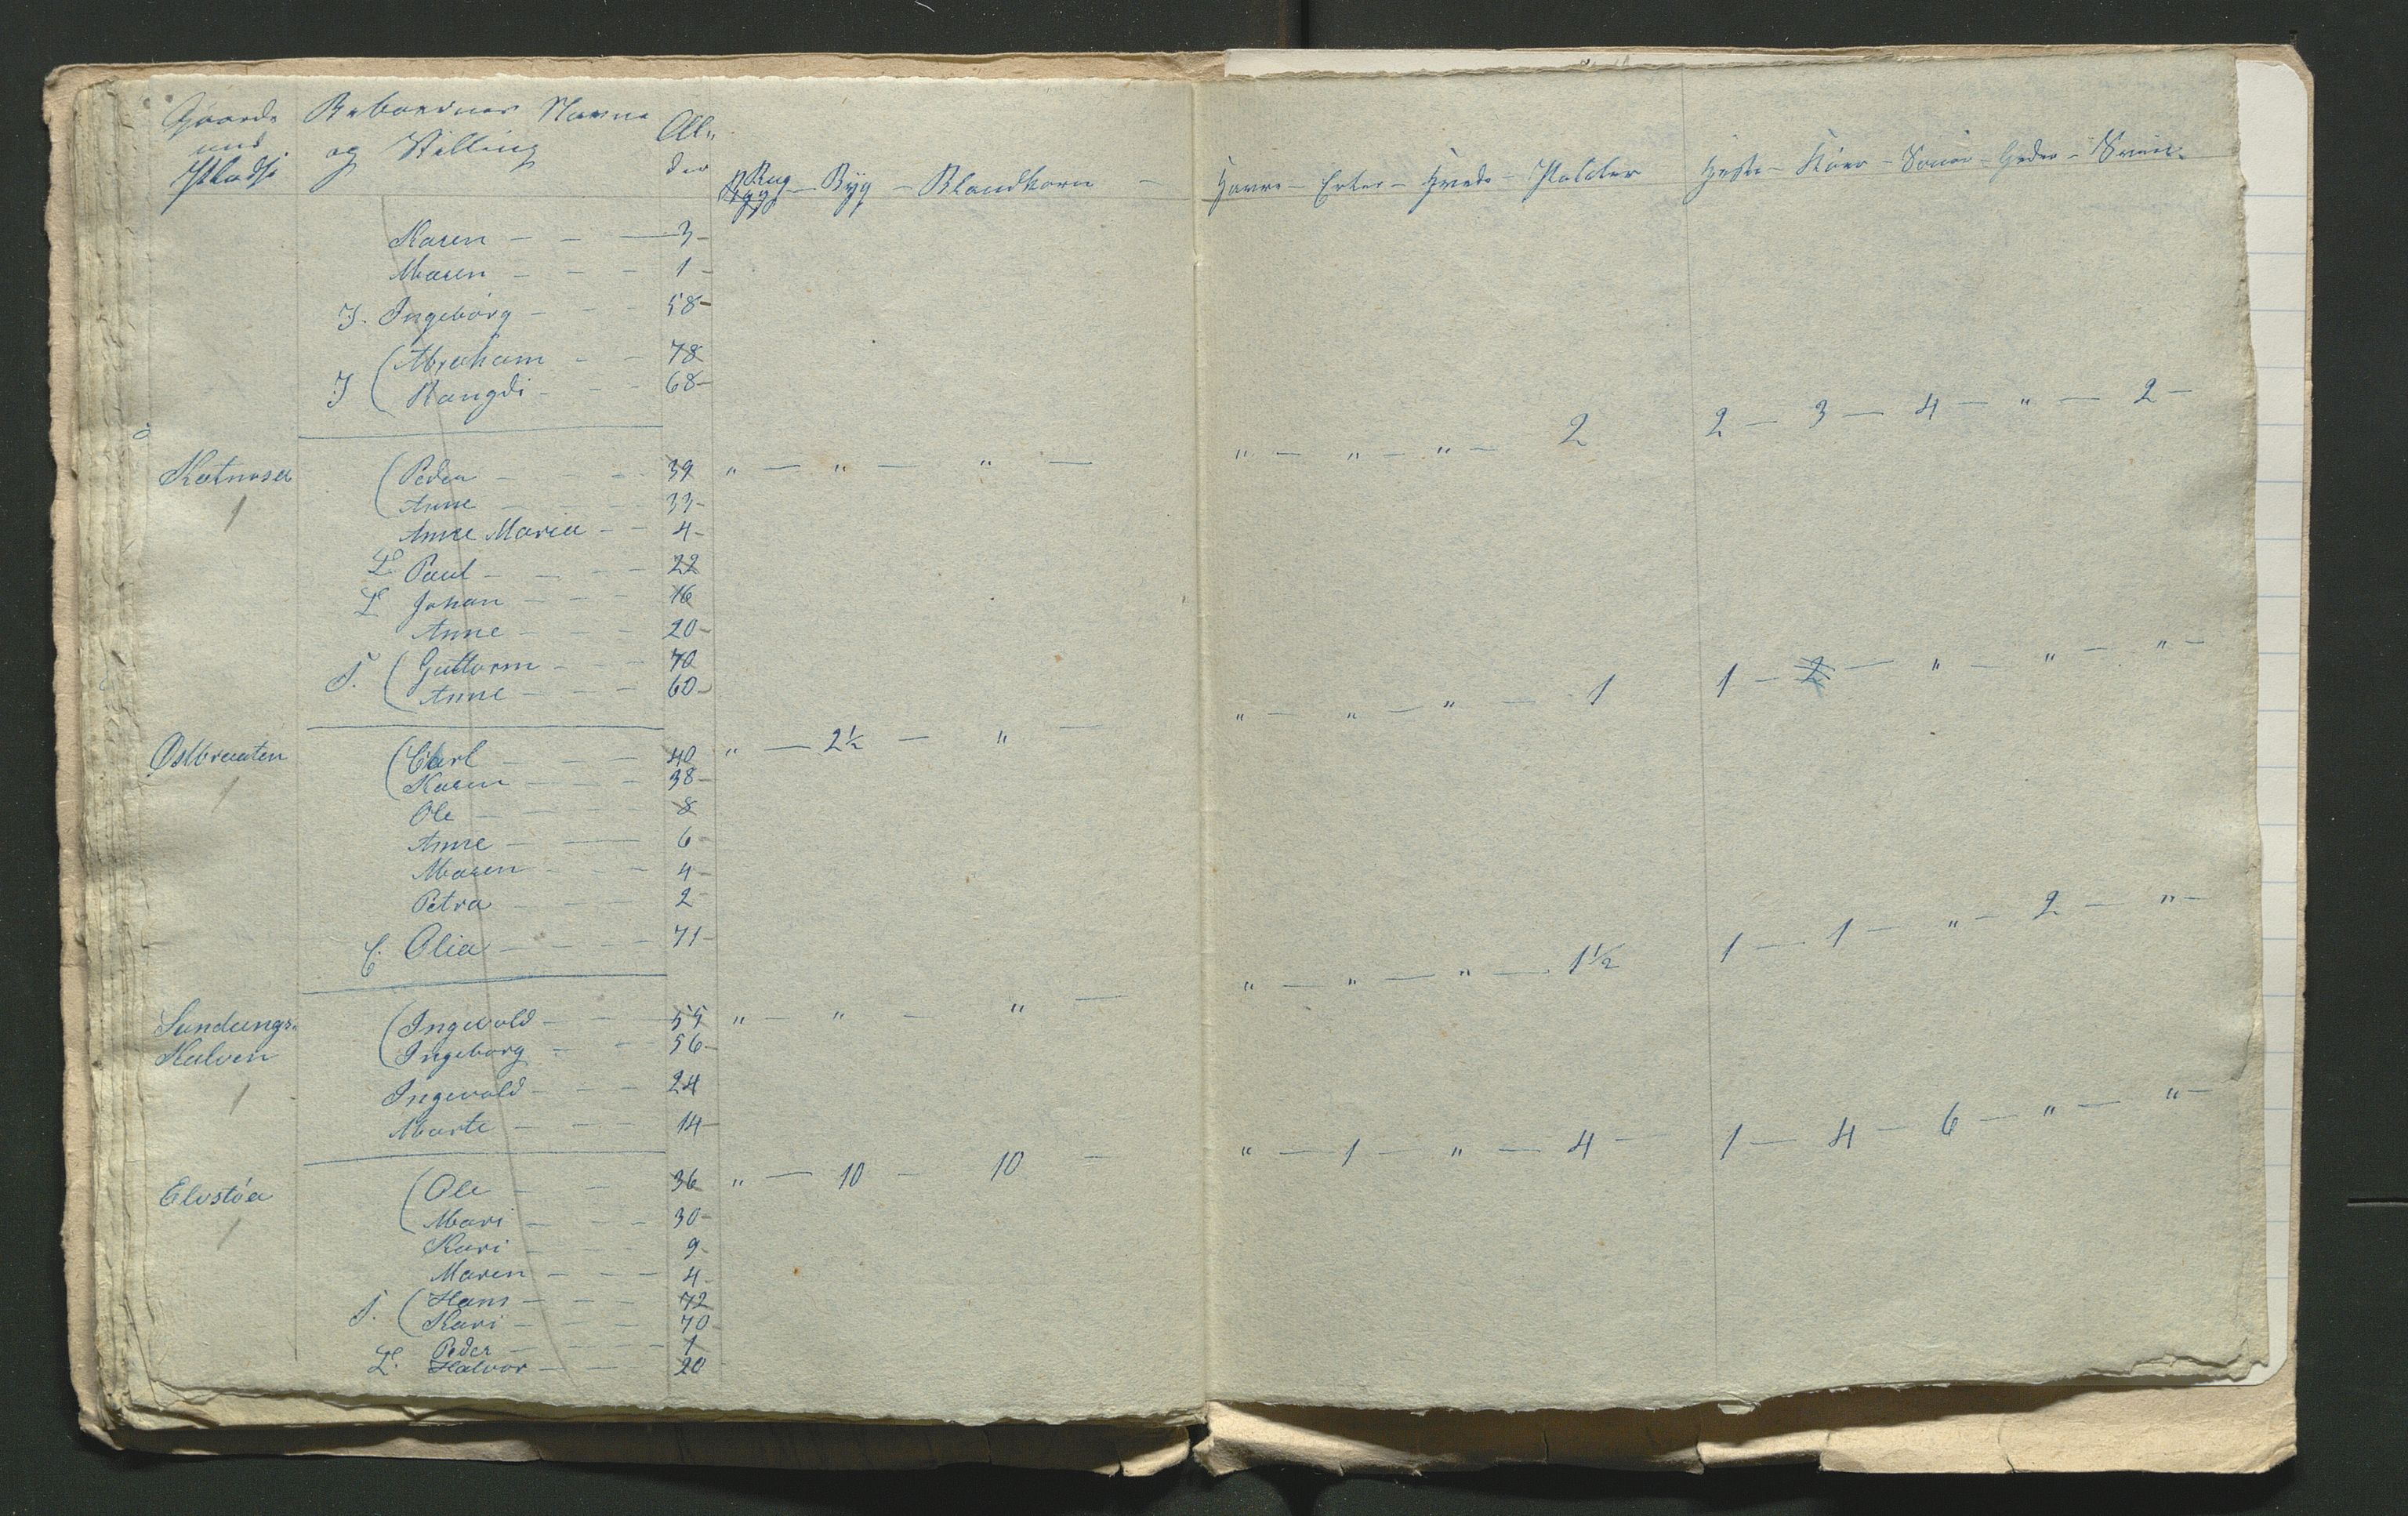 Gaarde Beboernes Navne Al-
und og Stilling der
Pladse Rug — Byg — Blandkorn —
Karen — — — 3 —
Maren — — — 1 —
I. Ingebórg — — — 58 —
( Abraham — — 78
I ( Rangdi — — — 68 —
Katnosa ( Peder — — — 39 " — " — " —
1 ( Anne — — — 33 —
Anne Maria — — 4 —
L. Paul — — — 22
L Johan — — — 16
Anne — — — 20 —
( Guttorm — — — 70
F. ( Anne — — — 60 —
Østbraaten ( Carl — — — 40 " — 2½ — " —
1 ( Karen — — — 38 —
Ole — — — 8
Anne — — 6 —
Maren — — — 4 —
Petra — — — 2 —
C. Olia — — — 71 —
Sandungs- ( Ingevold — — — 55 " — " — " —
Kalven ( Ingeborg — — — 56 —
1 Ingevold — — — 24
Marte — — — 14 —
Elvstóa ( Ole — — 36 " — 10 — 10 —
1 ( Mari — — — 30 —
Kari — — 9 —
Maren — — — 4 —
( Hans — — — 72
F. ( Kari — — — 70 —
Peder — — — 1
L. Halvor — — 20
Havre — Erter — Hvede — Poteter Heste — Kóer — Souer — Geder — Sviin
" — " — " — 2 2 — 3 — 4 — " — 2 —
" — " — " — 1 1 — 2 — " — " — " —
" — " — " — 1½ 1 — 1 — " — 2 — " —
" — 1 — " — 4 — 1 — 4 — 6 — " — " —